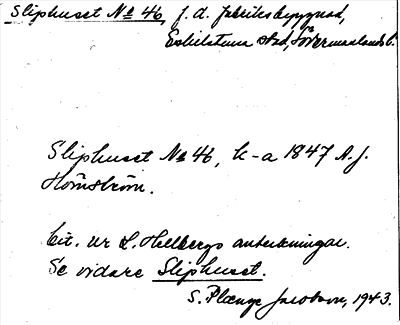 Sliphuset No 46, f.d. fabriksbyggnad,
Eskilstuna stad, Södermanlands l.
Sliphuset No 46, k-a 1847 A. J.
Holmström.
Cit. ur L. Hellbergs anteckningar.
Se vidare Sliphuset.
S. Plænge Jacobson, 1943.